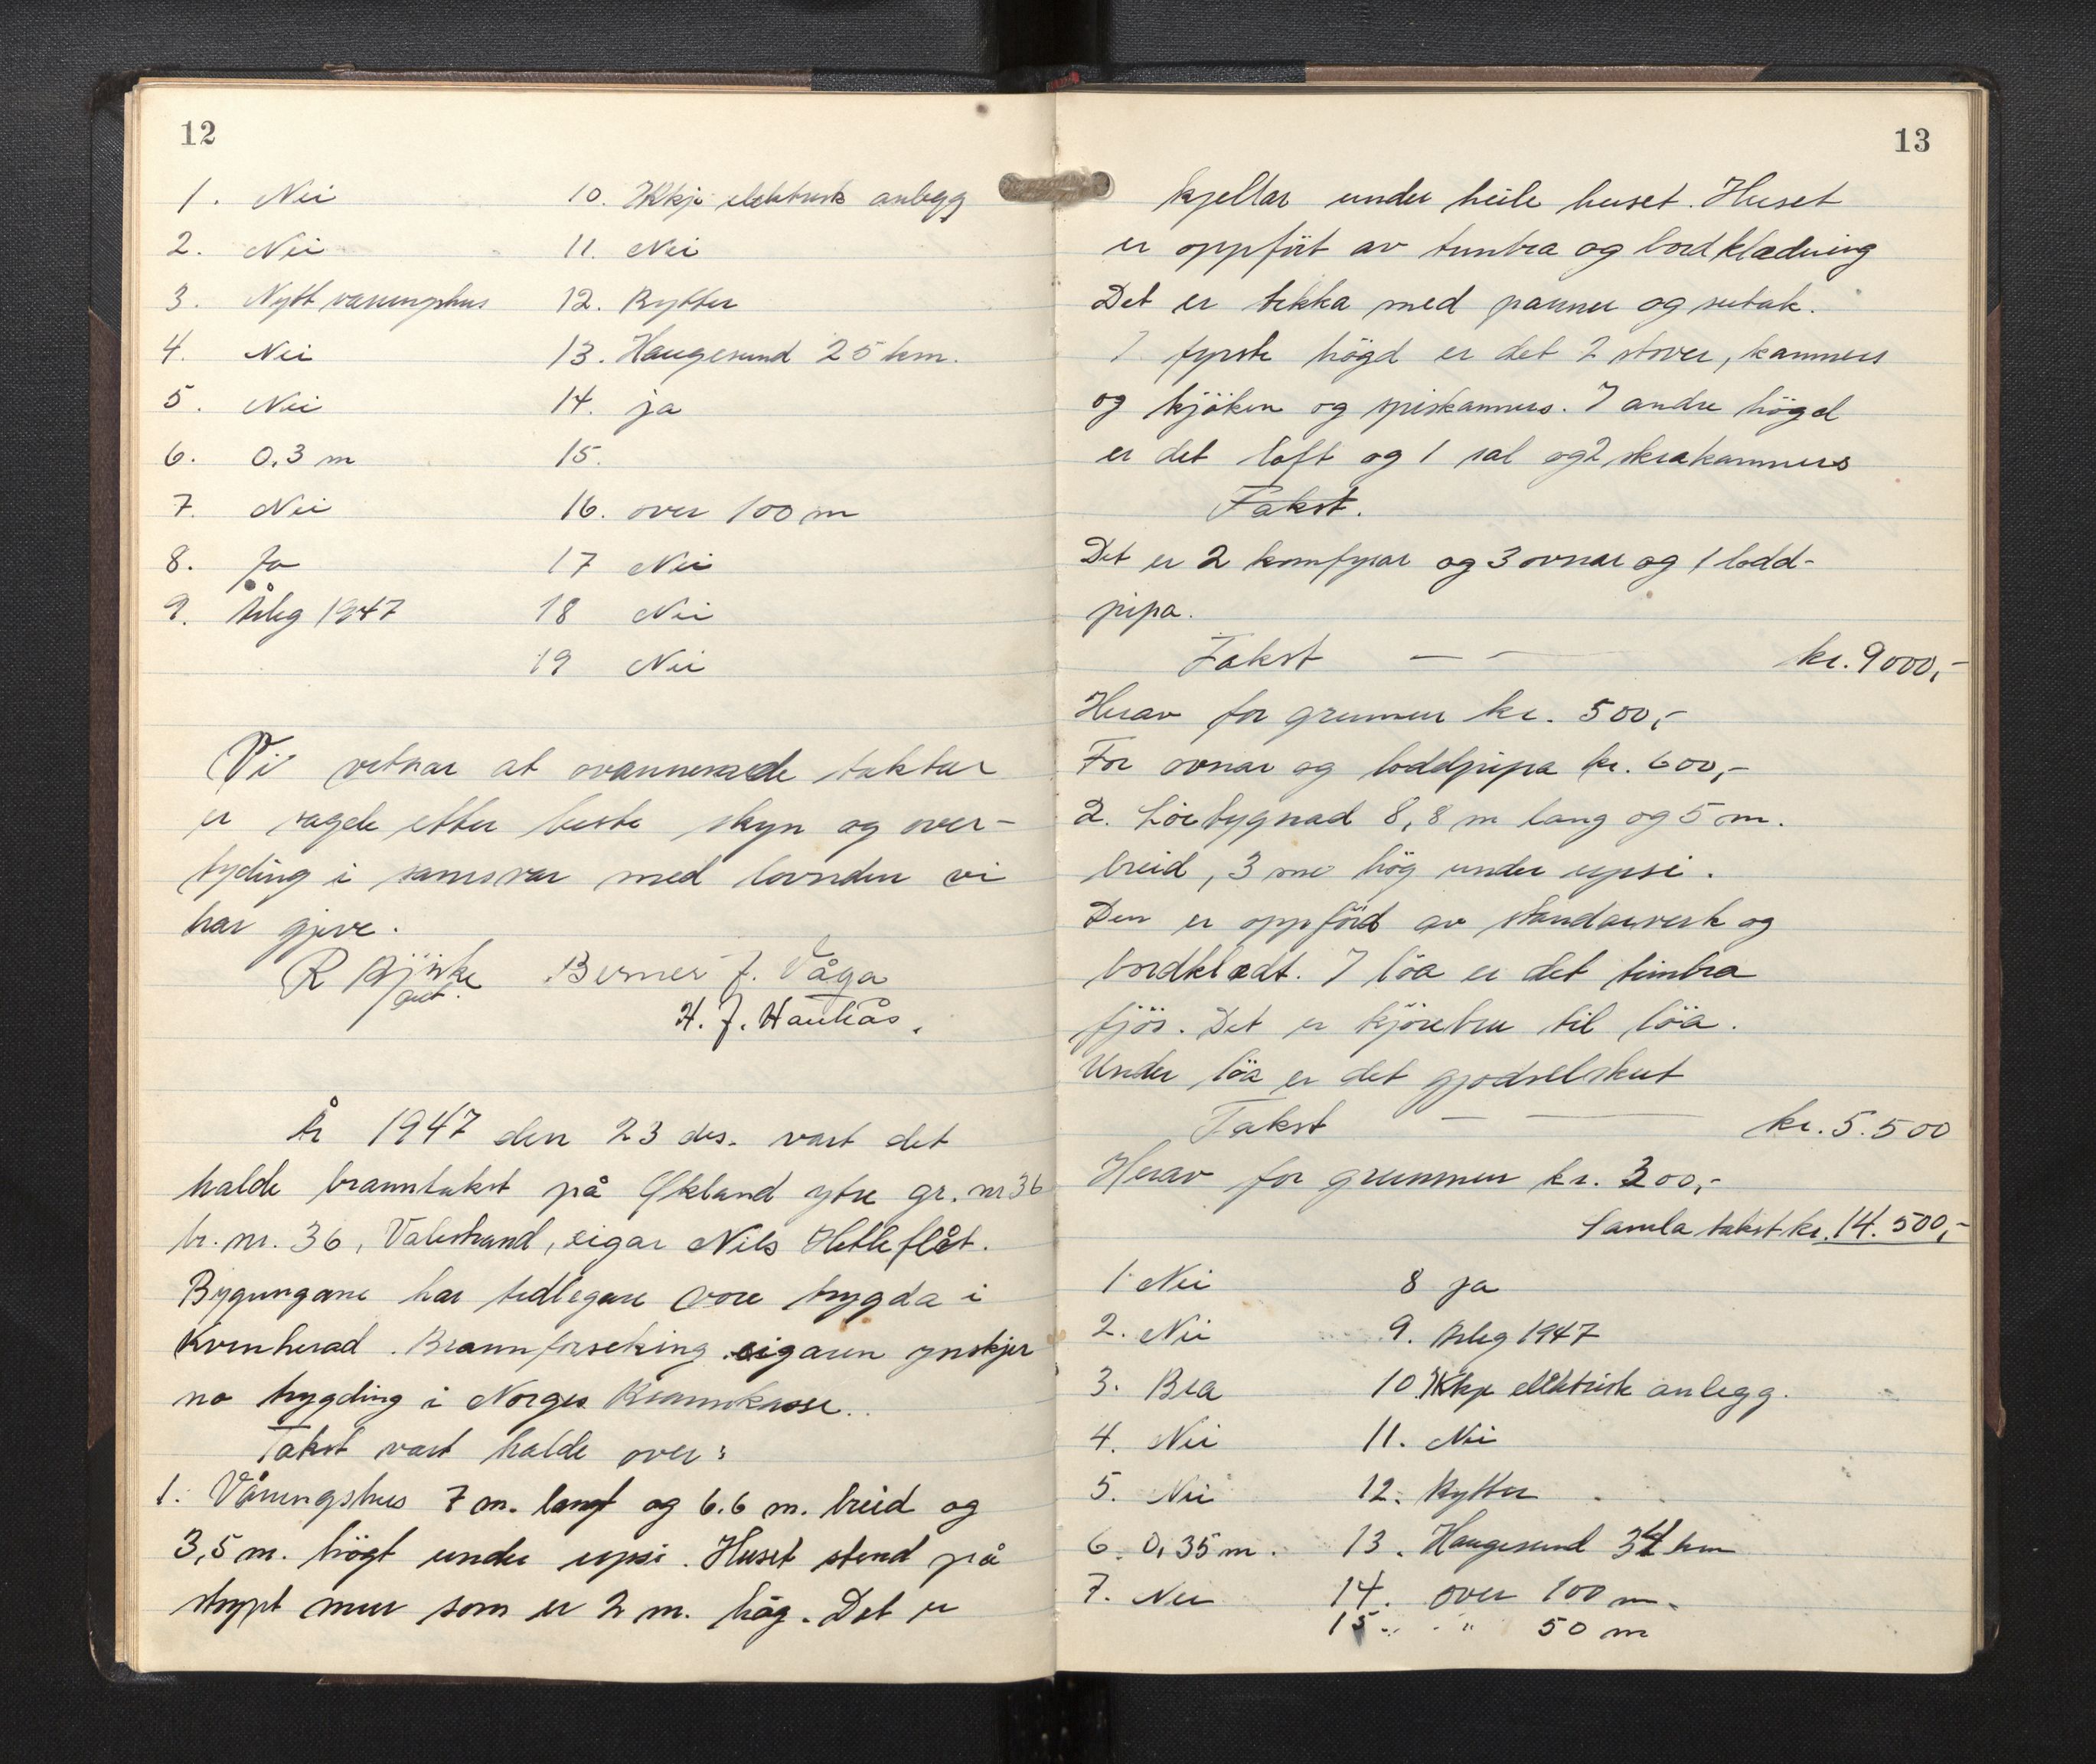 12
1. Nei
2. Nei
3. Nytt våningshus
4. Nei
5. Nei
6. 0,3 m
7. Nei
8. Ja
9. Årleg 1947
10. Ikkje elektrisk anlegg
11. Nei
12. Bytter
13. Haugesund 25 km.
14. ja
15.
16. over 100 m
17 Nei
18 Nei
19 Nei
Vi vitnar at ovannemnde takstar
er sagde etter beste skyn og over-
tyding i samsvar med lovnden vi
har gjeve.
R
Berner J. Våga
H. J. Haukås.
År 1947 den 23 des. vart det
halde branntakst på Økland ytre gr. nr 36
br. nr. 36, Valestrand, eigar Nils Hetleflåt.
Bygningane har tidlegare vore trygda i
Kvinherad. Brannforseking eigaren ynskjer
no trygding i Norges Brannkasse.
Takst vart halde over:
1. Våningshus 7 m. langt og 6.6 m. breid og
3,5 m. högt under upsi. Huset stend på
stypt mur som er 2 m. høg. Det er
13
kjellar under heile huset. Huset
er oppfört av timbra og bordklædning
Det er tekka med panner og sutak.
I fyrste högd er det 2 stover, kammers
og kjöken og spiskammers. I andre högd
er det loft og 1 sal og 2 skrakammers
Takst.
Det er 2 komfyrar og 3 ovnar og 1 lodd-
pipa.
Takst — — kr. 9000,-
Herav for grunnen kr. 500,-
For ovnar og loddpipa kr. 600,-
2. Löebygnad 8,8 m lang og 5 m.
breid, 3 m hög under upsi.
Den er oppförd av standarverk og
bordklædt. I löa er det timbra
fjös. Det er kjörebru til löa.
Under löa er det gjodselskut
Takst — — kr. 5.500
Herav for grunnen kr. 300,-
Samla takst kr. 14.500,-
1. Nei
2. Nei
3. Bra
4. Nei
5. Nei
6. 0,35 m.
7. Nei
8 ja
9. Årleg 1947
10 Ikkje elektrisk anlegg.
11. Nei
12. Bytter
13. Haugesund 34 km
14. over 100 m.
15. " 50 m